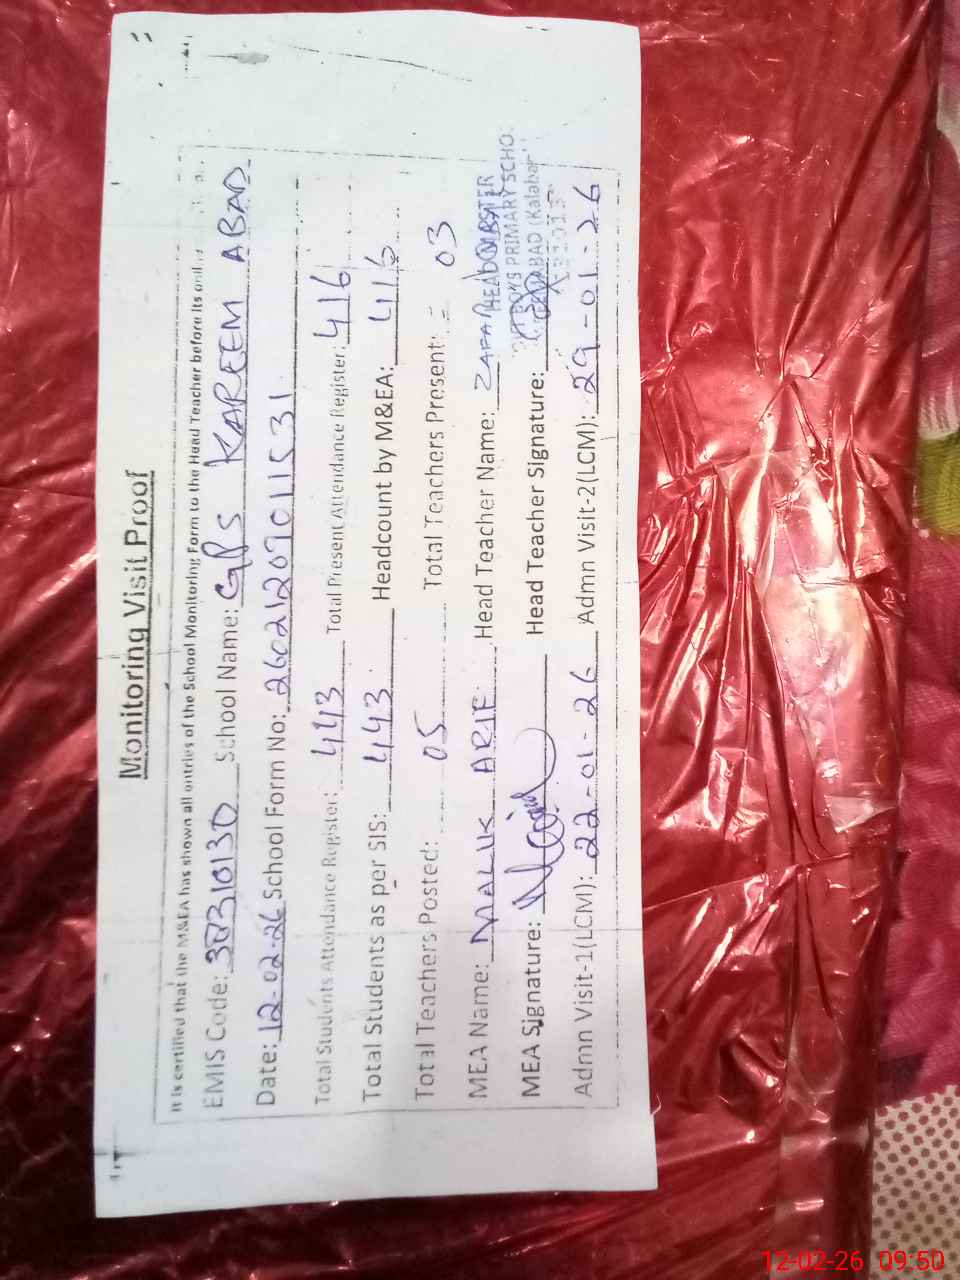 Monitoring Visit Proof
It is certified that the M&EA has shown all entries of the School Monitoring Form to the Head Teacher before its
EMIS Code: 38310130 School Name: GPS KAREEM ABAD
Date: 12-02-26 School Form No: 260212090115531
Total Students Attendance Register: 443 Total Present Attendance Register: 416
Total Students as per SIS: 443 Headcount by M&EA: 416
Total Teachers Posted: 05 Total Teachers Present: 03
MEA Name: MALIK ARIF Head Teacher Name: ZAFAR
HEADMASTER
BOYS PRIMARY SCHO
ABAD (Kalabagh
MEA Signature: Head Teacher Signature:
Admn Visit-1(LCM): 22-01-26 Admn Visit-2(LCM): 29-01-26
12-02-26 09:50